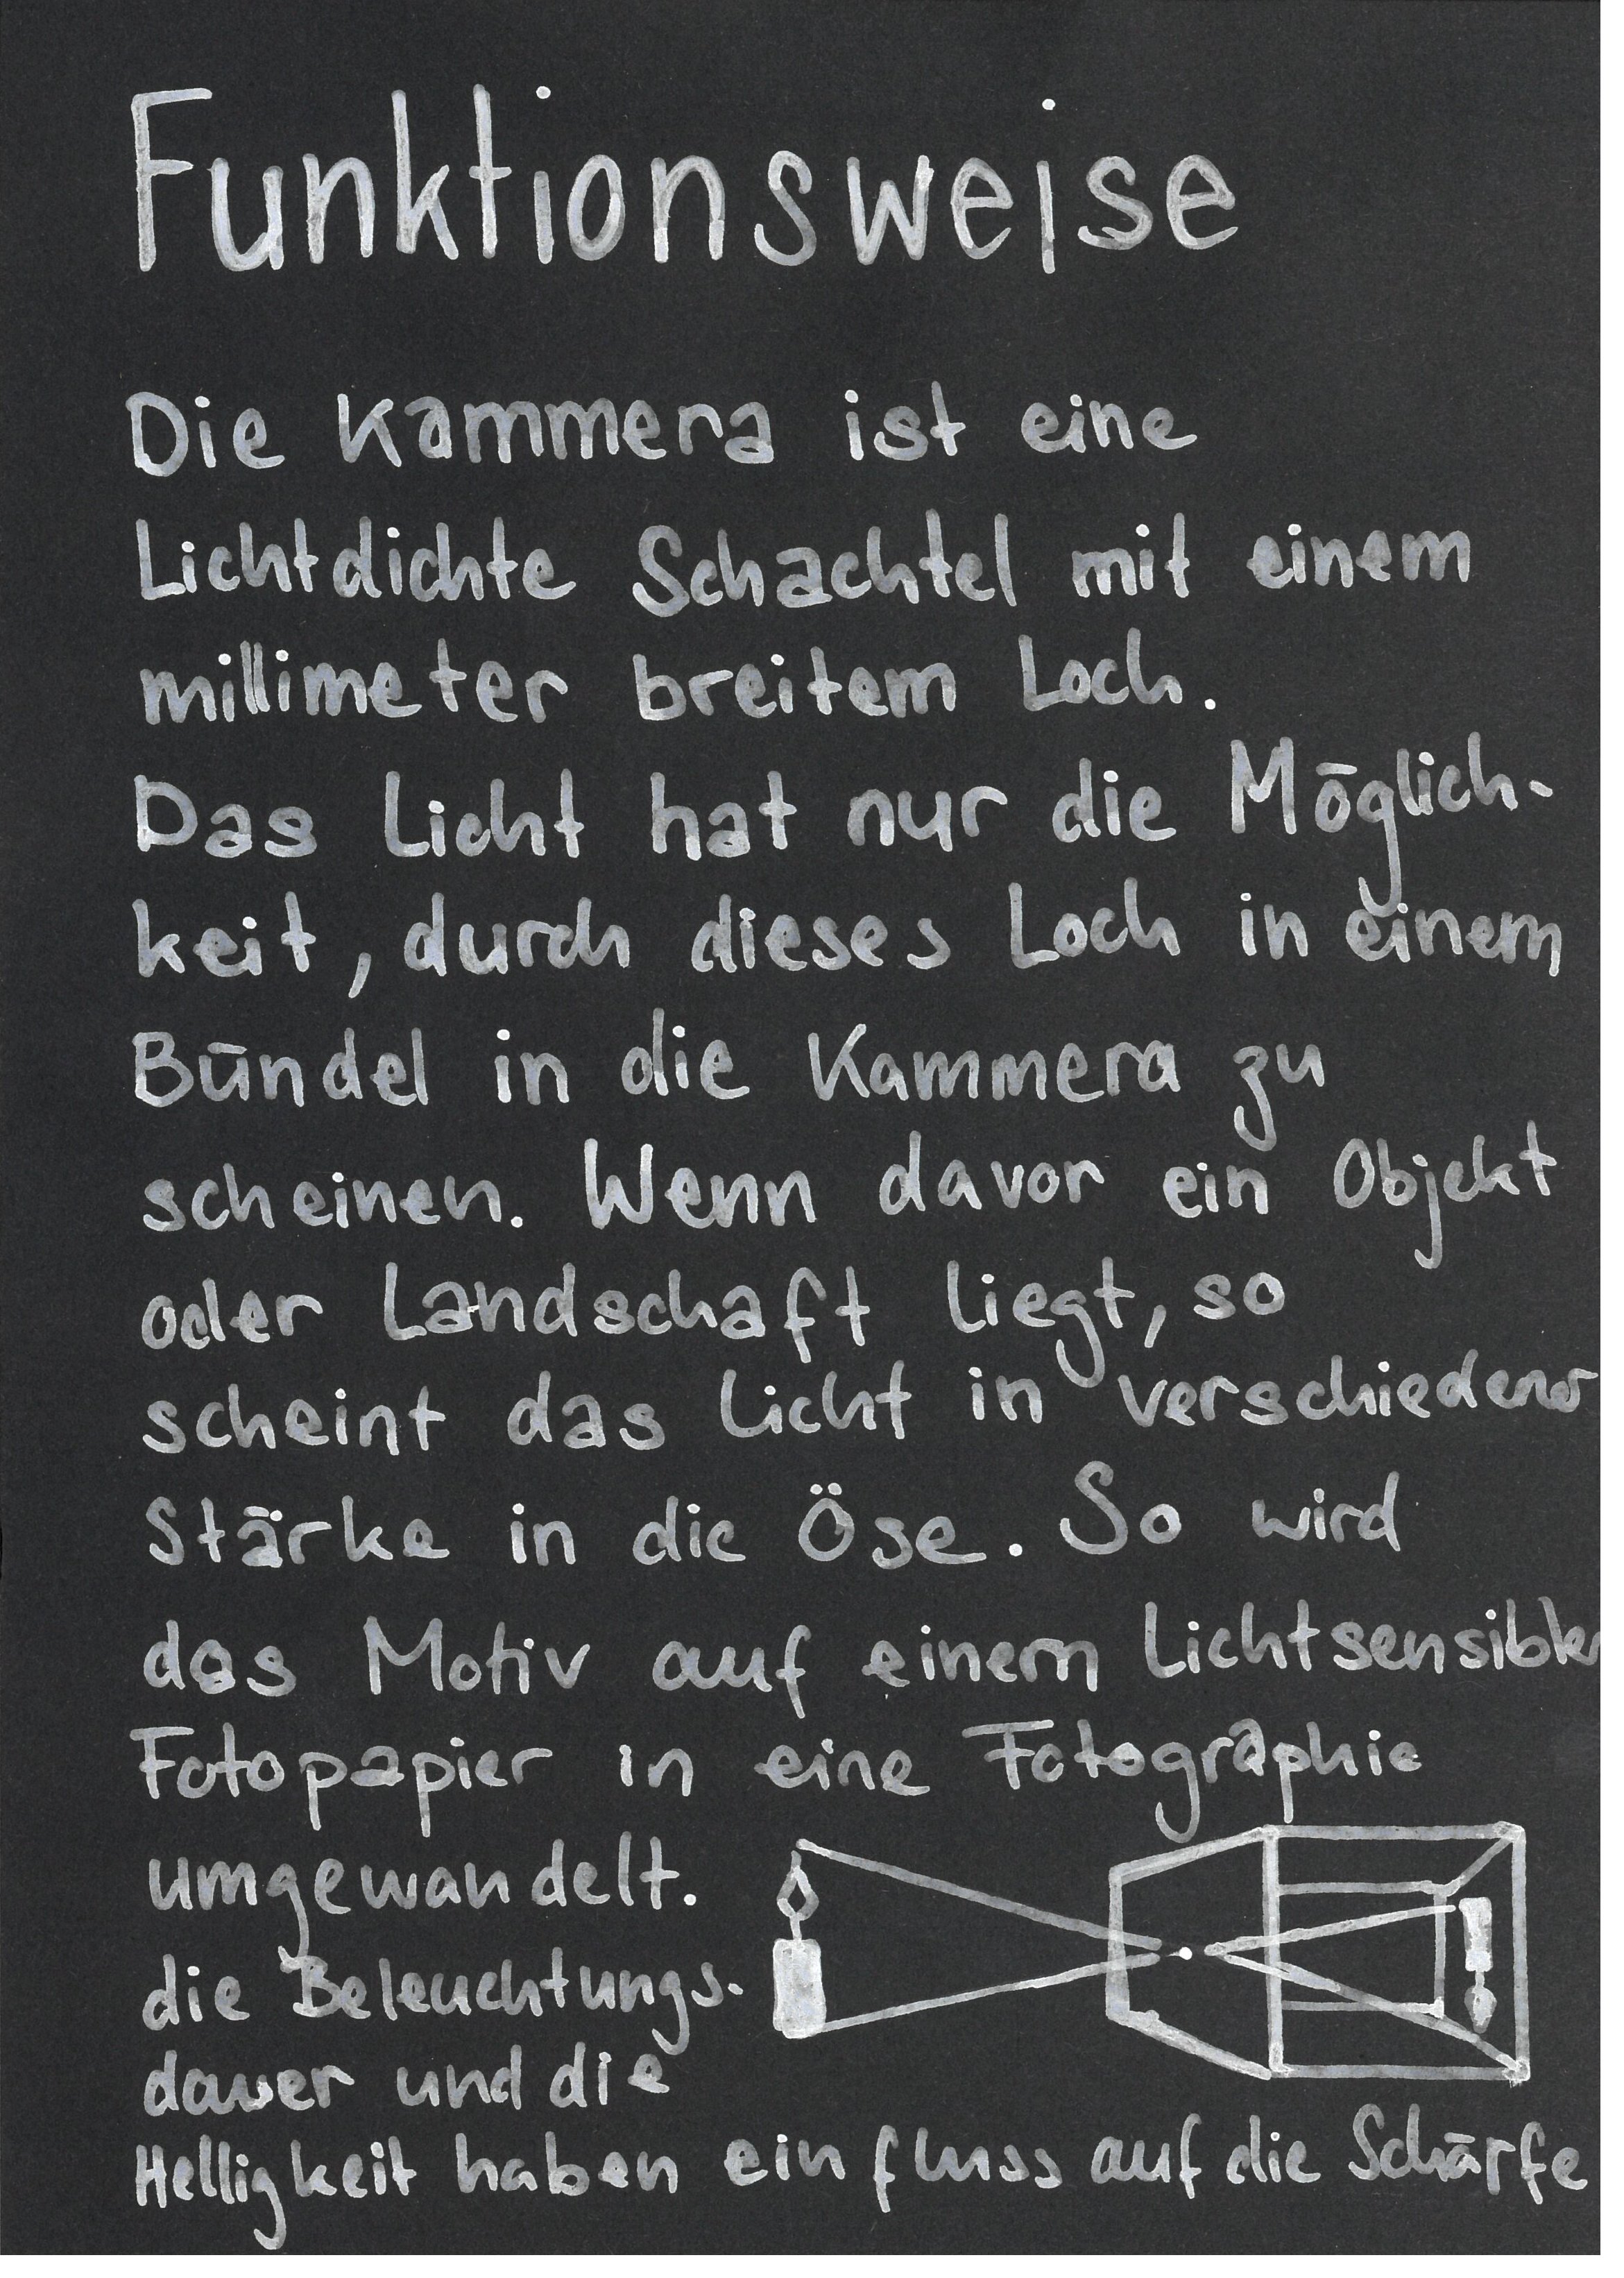 Funktionsweise
Die Kammera ist eine
Lichtdichte Schachtel mit einem
millimeter breitem Loch.
Das Licht hat nur die Möglich-
keit, durch dieses Loch in einem
Bündel in die Kammera zu
scheinen. Wenn davor ein Objekt
oder Landschaft liegt, so
scheint das Licht in verschiedener
Stärke in die Öse. So wird
das Motiv auf einem Lichtsensiblen
Fotopapier in eine Fotographie
umgewandelt.
die Beleuchtungs-
dauer und die
Helligkeit haben einfluss auf die Schärfe